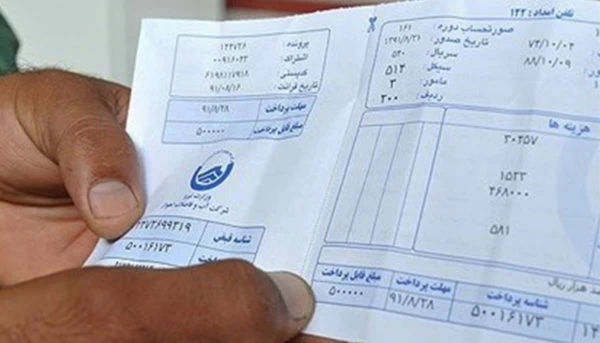 تلفن امداد: ۱۲۲
صورتحساب دوره: ۱۶۱
تاریخ صدور: ۱۳۹۱/۸/۲۱
سریال: ۵۳۰
سیکل ۵۱۲
مامور: ۳
ردیف: ۲۰۰
۷۴/۱۰/۰۲
۸۸/۱۰/۰۹
هزینه ها
۳۰۲۵۷
۱۵۲۳
۴۶۸۰۰۰
۵۸۱
هزار ریال
شناسه پرداخت
مهلت پرداخت
مبلغ قابل پرداخت
۵۰۰۱۶۱۷۳
۹۱/۸/۲۸
۵۰۰۰۰۰
پرونده: ۱۲۴۷۲۶
اشتراک: ۰۰۹۱۶۰۲۳
کدپستی: ۶۱۹۸۱۱۷۹۱۸
تاریخ قرائت: ۹۱/۰۸/۱۶
مهلت پرداخت ۹۱/۸/۲۸
مبلغ قابل پرداخت ۵۰۰۰۰۰
وزارت نیرو
شرکت آب و فاضلاب اهواز
شناسه قبض
۵۰۰۱۶۱۷۳